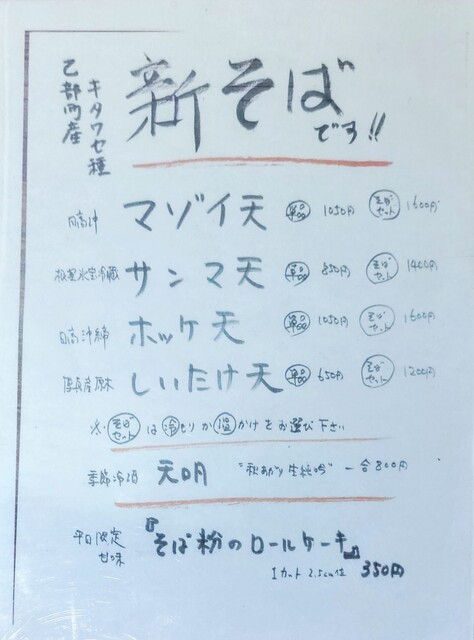 新そば
です!!
キタワセ種
乙部町産
日高沖 マゾイ天 単品 1050円 そばセット 1600円
氷室冷蔵 サンマ天 単品 850円 そばセット 1400円
日高沖締 ホッケ天 単品 1050円 そばセット 1600円
産原木 しいたけ天 単品 650円 そばセット 1200円
※そばセットは冷もりか温かけをお選び下さい
季節冷酒 天明 "秋あがり生純吟" 一合800円
平日限定
甘味
『そば粉のロールケーキ』
1カット 2.5cm位 350円